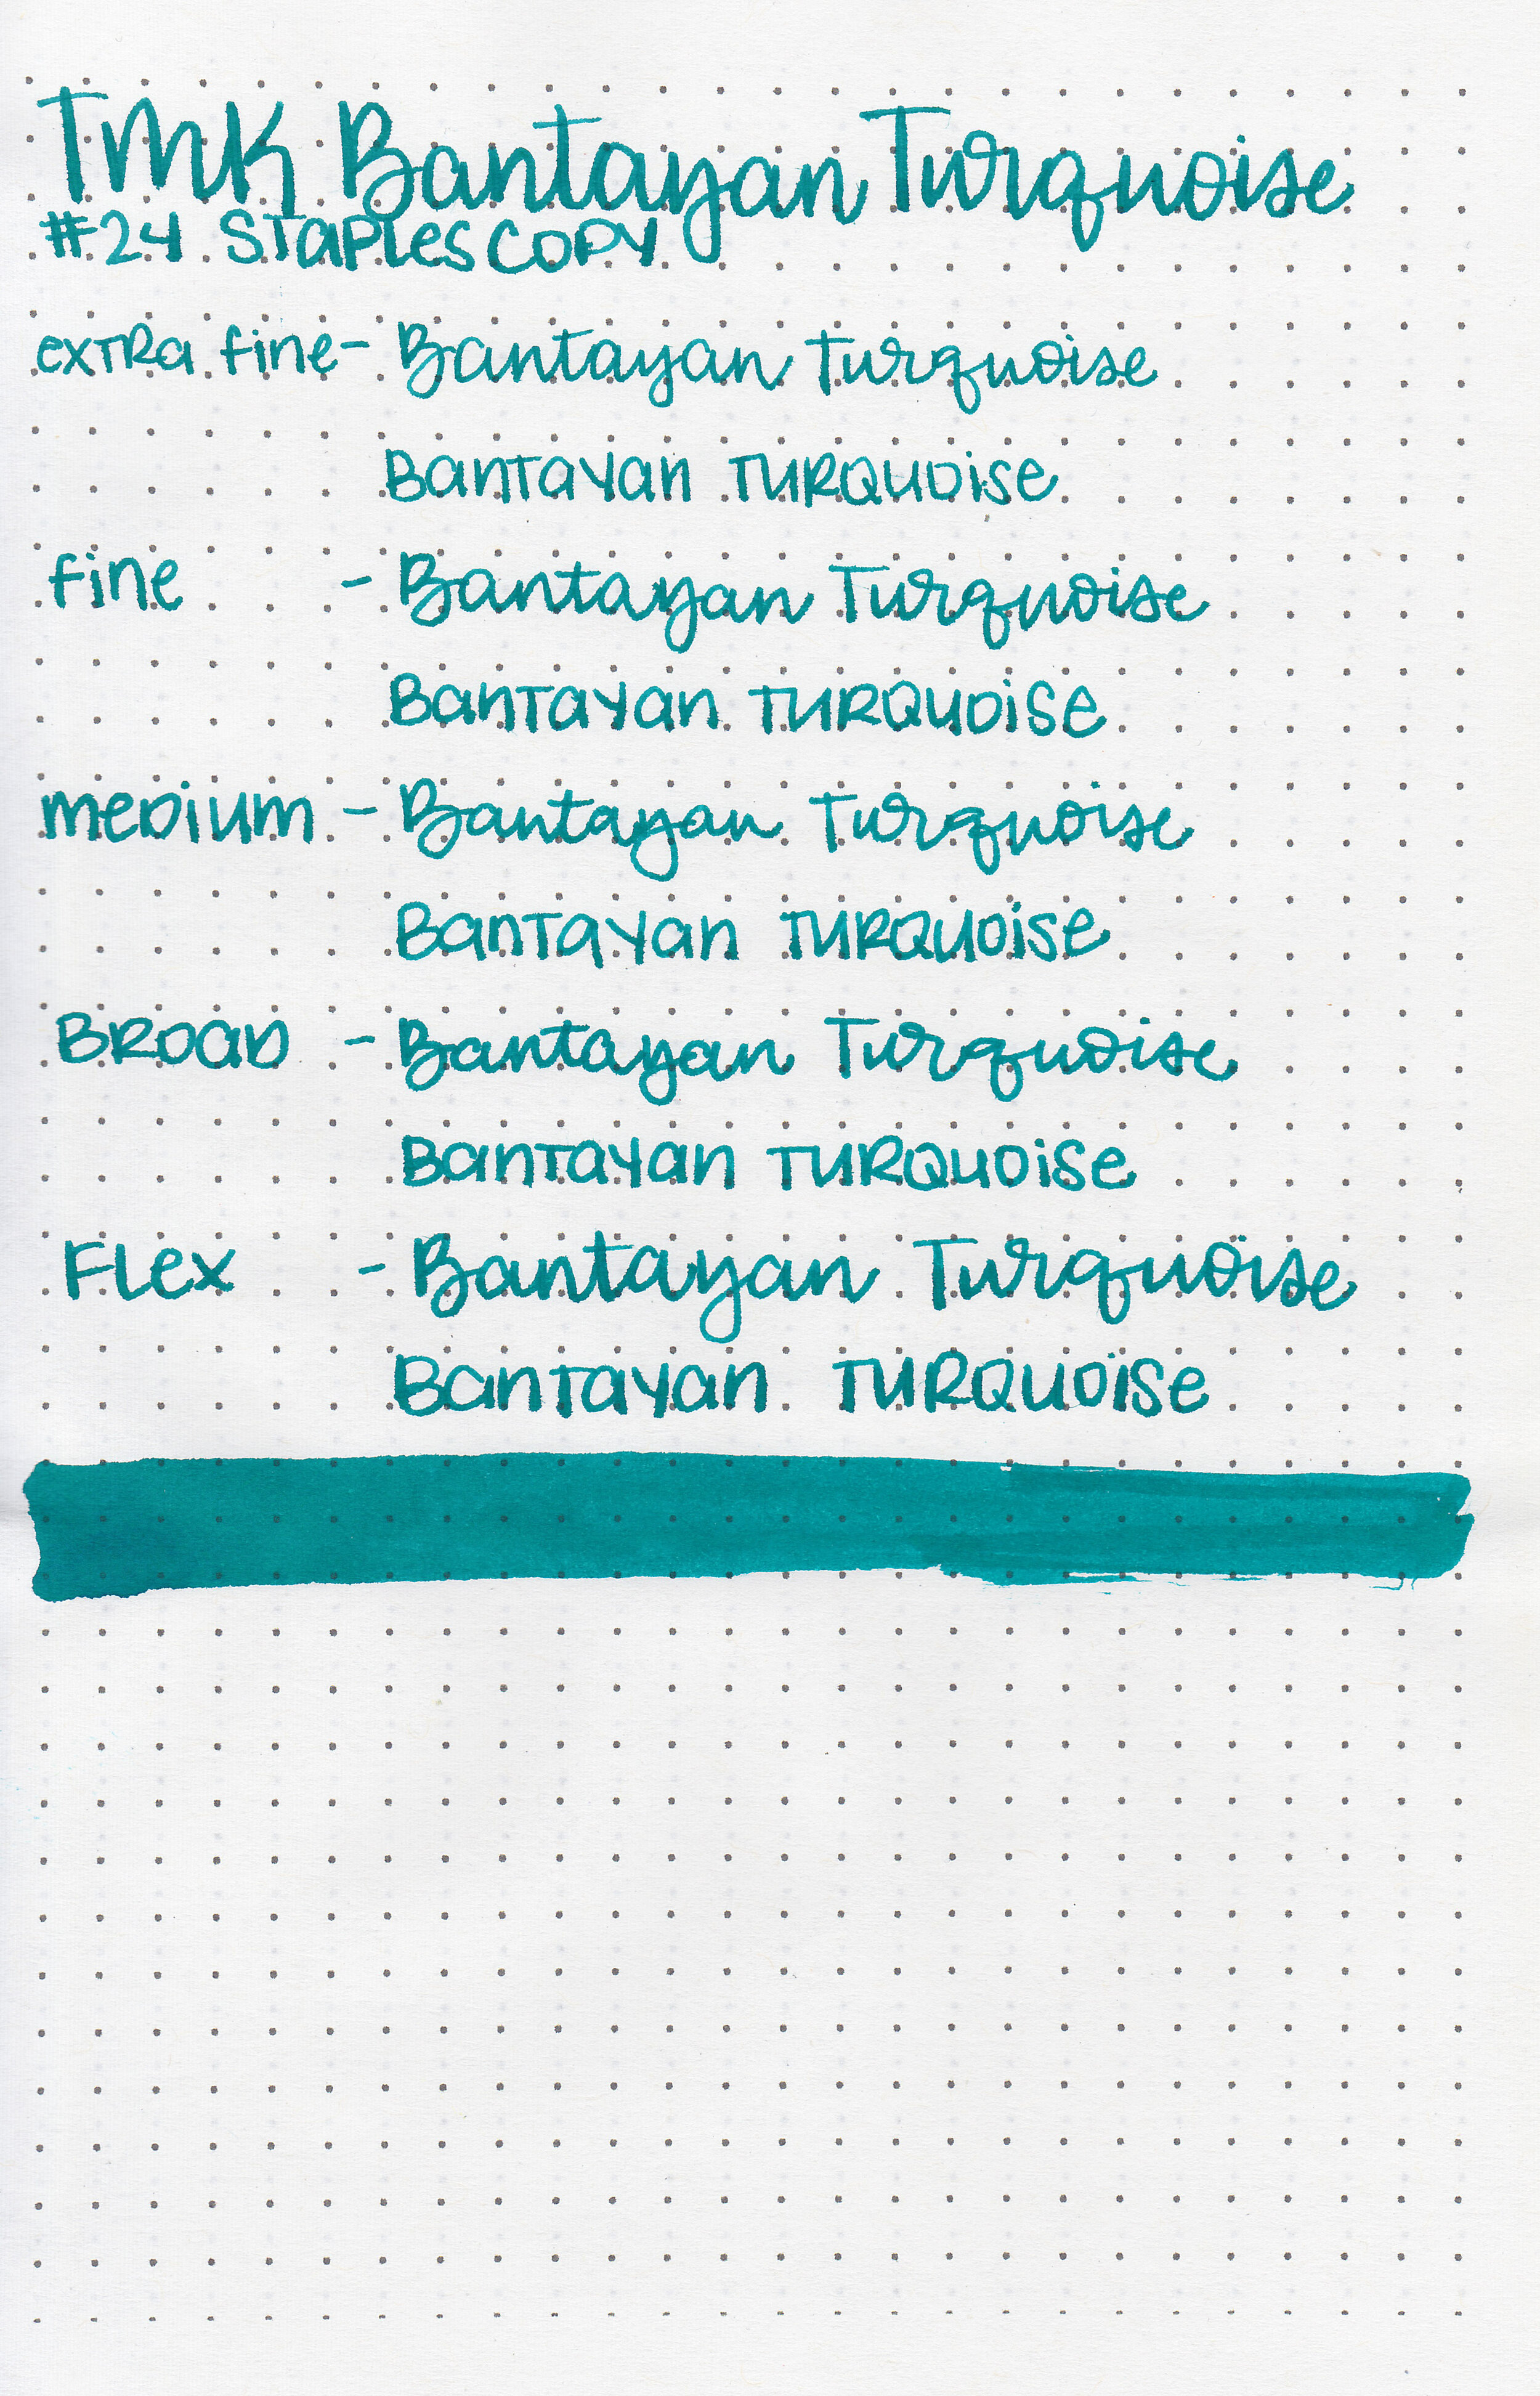 TMK Bantayan Turquoise
#24 STAPLES COPY
extra fine - Bantayan Turquoise
Bantayan Turquoise
fine - Bantayan Turquoise
Bantayan Turquoise
medium - Bantayan Turquoise
Bantayan Turquoise
Broad - Bantayan Turquoise
Bantayan Turquoise
Flex - Bantayan Turquoise
Bantayan Turquoise